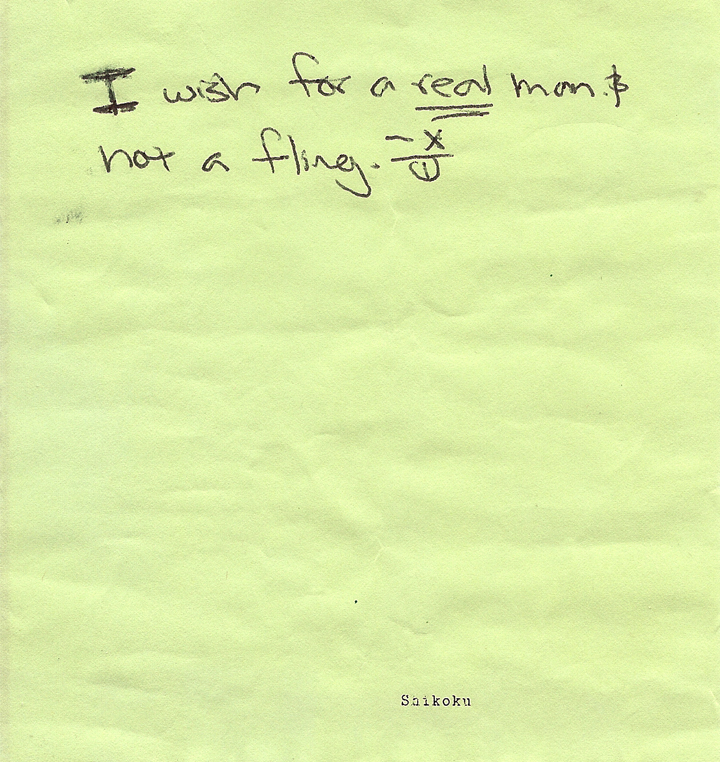 I wish for a real man &
not a fling. -X
Shikoku